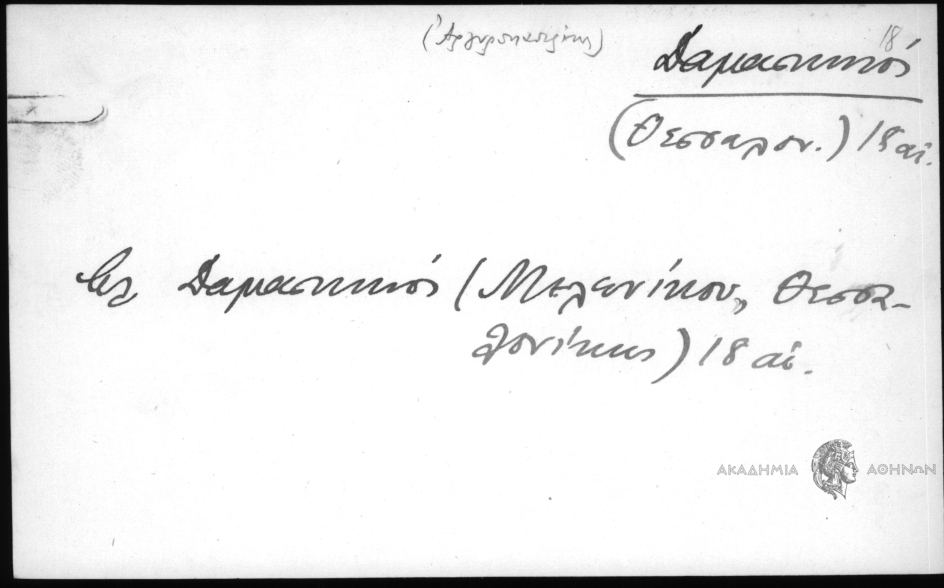 (Ἀργυροκαστρίτης)
18
Δαμασκηνός
(Θεσσαλον.) 18 αἰ.
βλ Δαμασκηνός (Μελενίκου, Θεσσα-
λονίκης) 18 αἰ.
ΑΚΑΔΗΜΙΑ ΑΘΗΝΩΝ